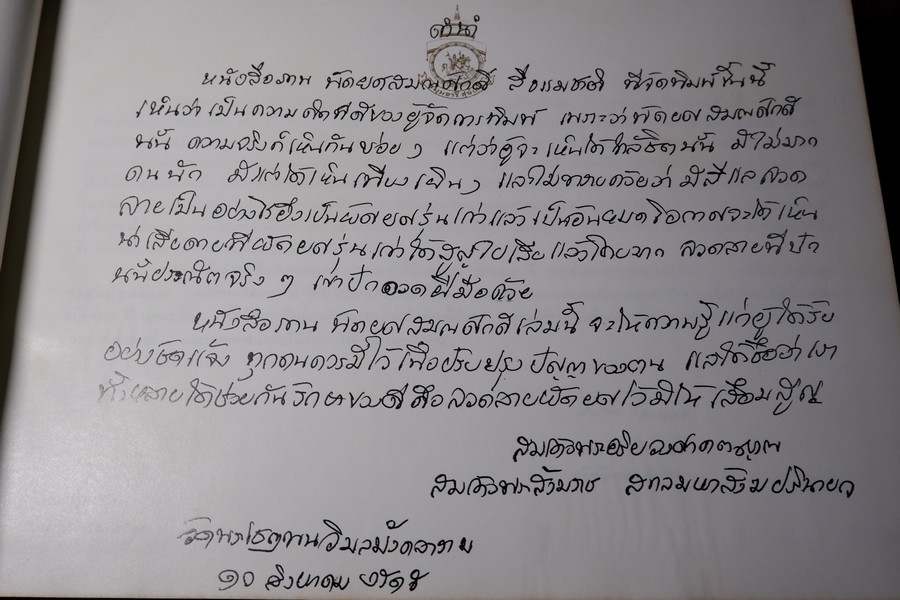 คำนำ
หนังสือภาพ พัดยศสมณศักดิ์ สื่อธรรมชาติ ที่จัดพิมพ์ขึ้นนี้
เห็นว่าเป็นความคิดที่ดีของผู้จัดการพิมพ์ เพราะว่าพัดยศสมณศักดิ์
นั้น ความจริงก็เห็นกันบ่อยๆ แต่ว่าผู้จะเห็นได้ใกล้ชิดนั้น มีไม่มาก
คนนัก มักแต่ได้เห็นเพียงเผินๆ และไม่ทราบด้วยว่า มีสีและลวด
ลายเป็นอย่างไร ยิ่งเป็นพัดยศรุ่นเก่าแล้ว เป็นอันหมดโอกาสจะได้เห็น
น่าเสียดายที่พัดยศรุ่นเก่าได้สูญหายเสียแล้วโดยมาก ลวดลายที่ปัก
นั้นประณีตจริงๆ เขาปักอวดฝีมือด้วย
หนังสือภาพ พัดยศสมณศักดิ์เล่มนี้ จะให้ความรู้แก่ผู้ได้รับ
อย่างชัดแจ้ง ทุกคนควรมีไว้เพื่อปรับปรุง ปัญญาของตน และได้ชื่อว่าเรา
ทั้งหลายได้ช่วยกันรักษาของดี คือลวดลายพัดยศไว้มิให้เสื่อมสูญ
สมเด็จพระอริยวงศาคตญาณ
สมเด็จพระสังฆราช สกลมหาสังฆปริณายก
วัดพระเชตุพนวิมลมังคลาราม
๑๐ สิงหาคม